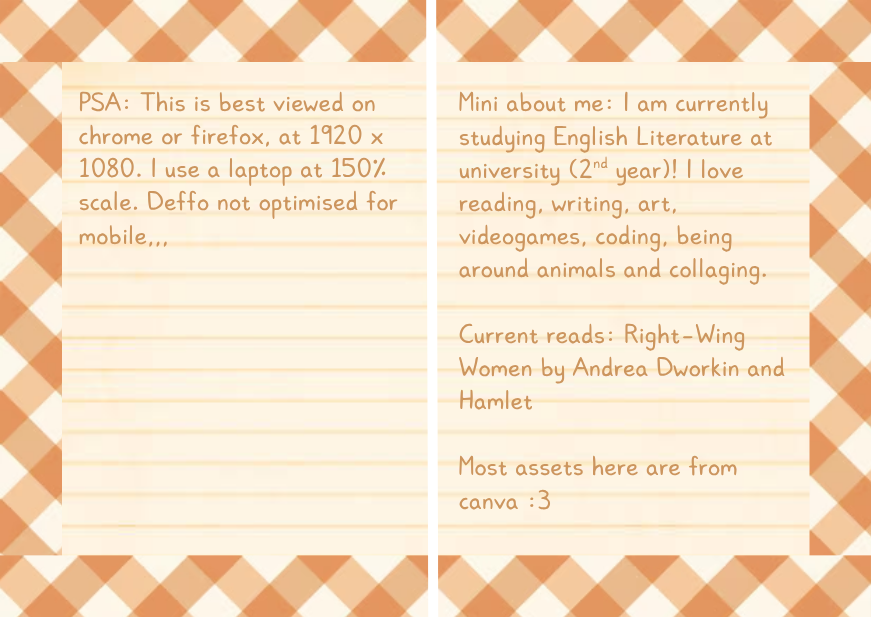 PSA: This is best viewed on
chrome or firefox, at 1920 x
1080. I use a laptop at 150%
scale. Deffo not optimised for
mobile,,,
Mini about me: I am currently
studying English Literature at
university (2nd year)! I love
reading, writing, art,
videogames, coding, being
around animals and collaging.
Current reads: Right-Wing
Women by Andrea Dworkin and
Hamlet
Most assets here are from
canva :3